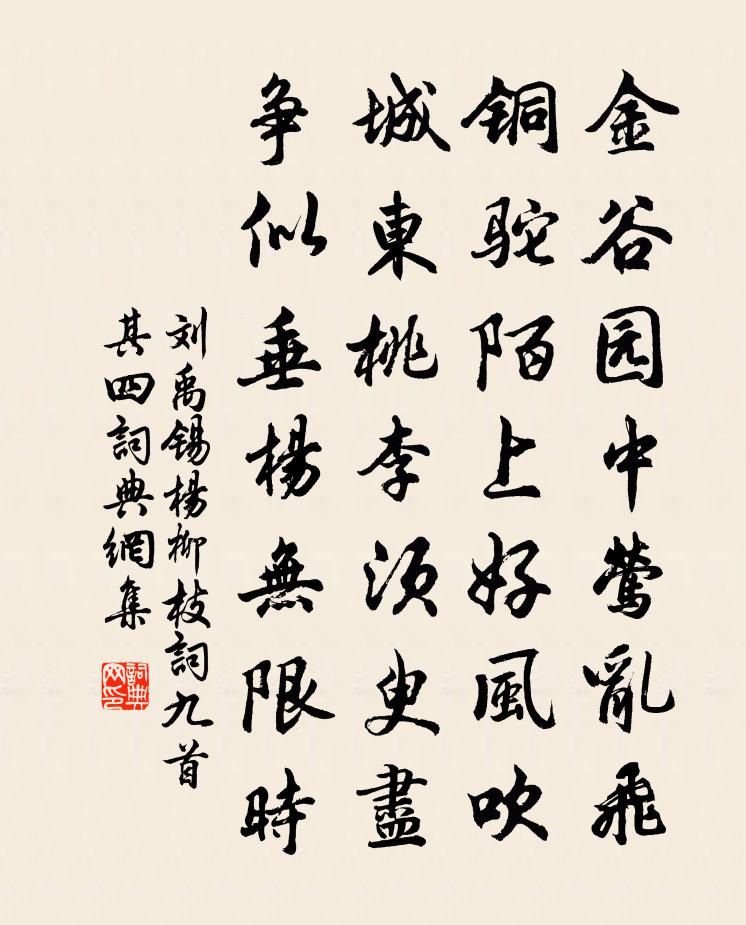 金谷园中莺亂飛
铜驼陌上好風吹
城東桃李须臾盡
争似垂楊無限時
刘禹锡楊柳枝詞九首
其四詞典網集
詞典网印